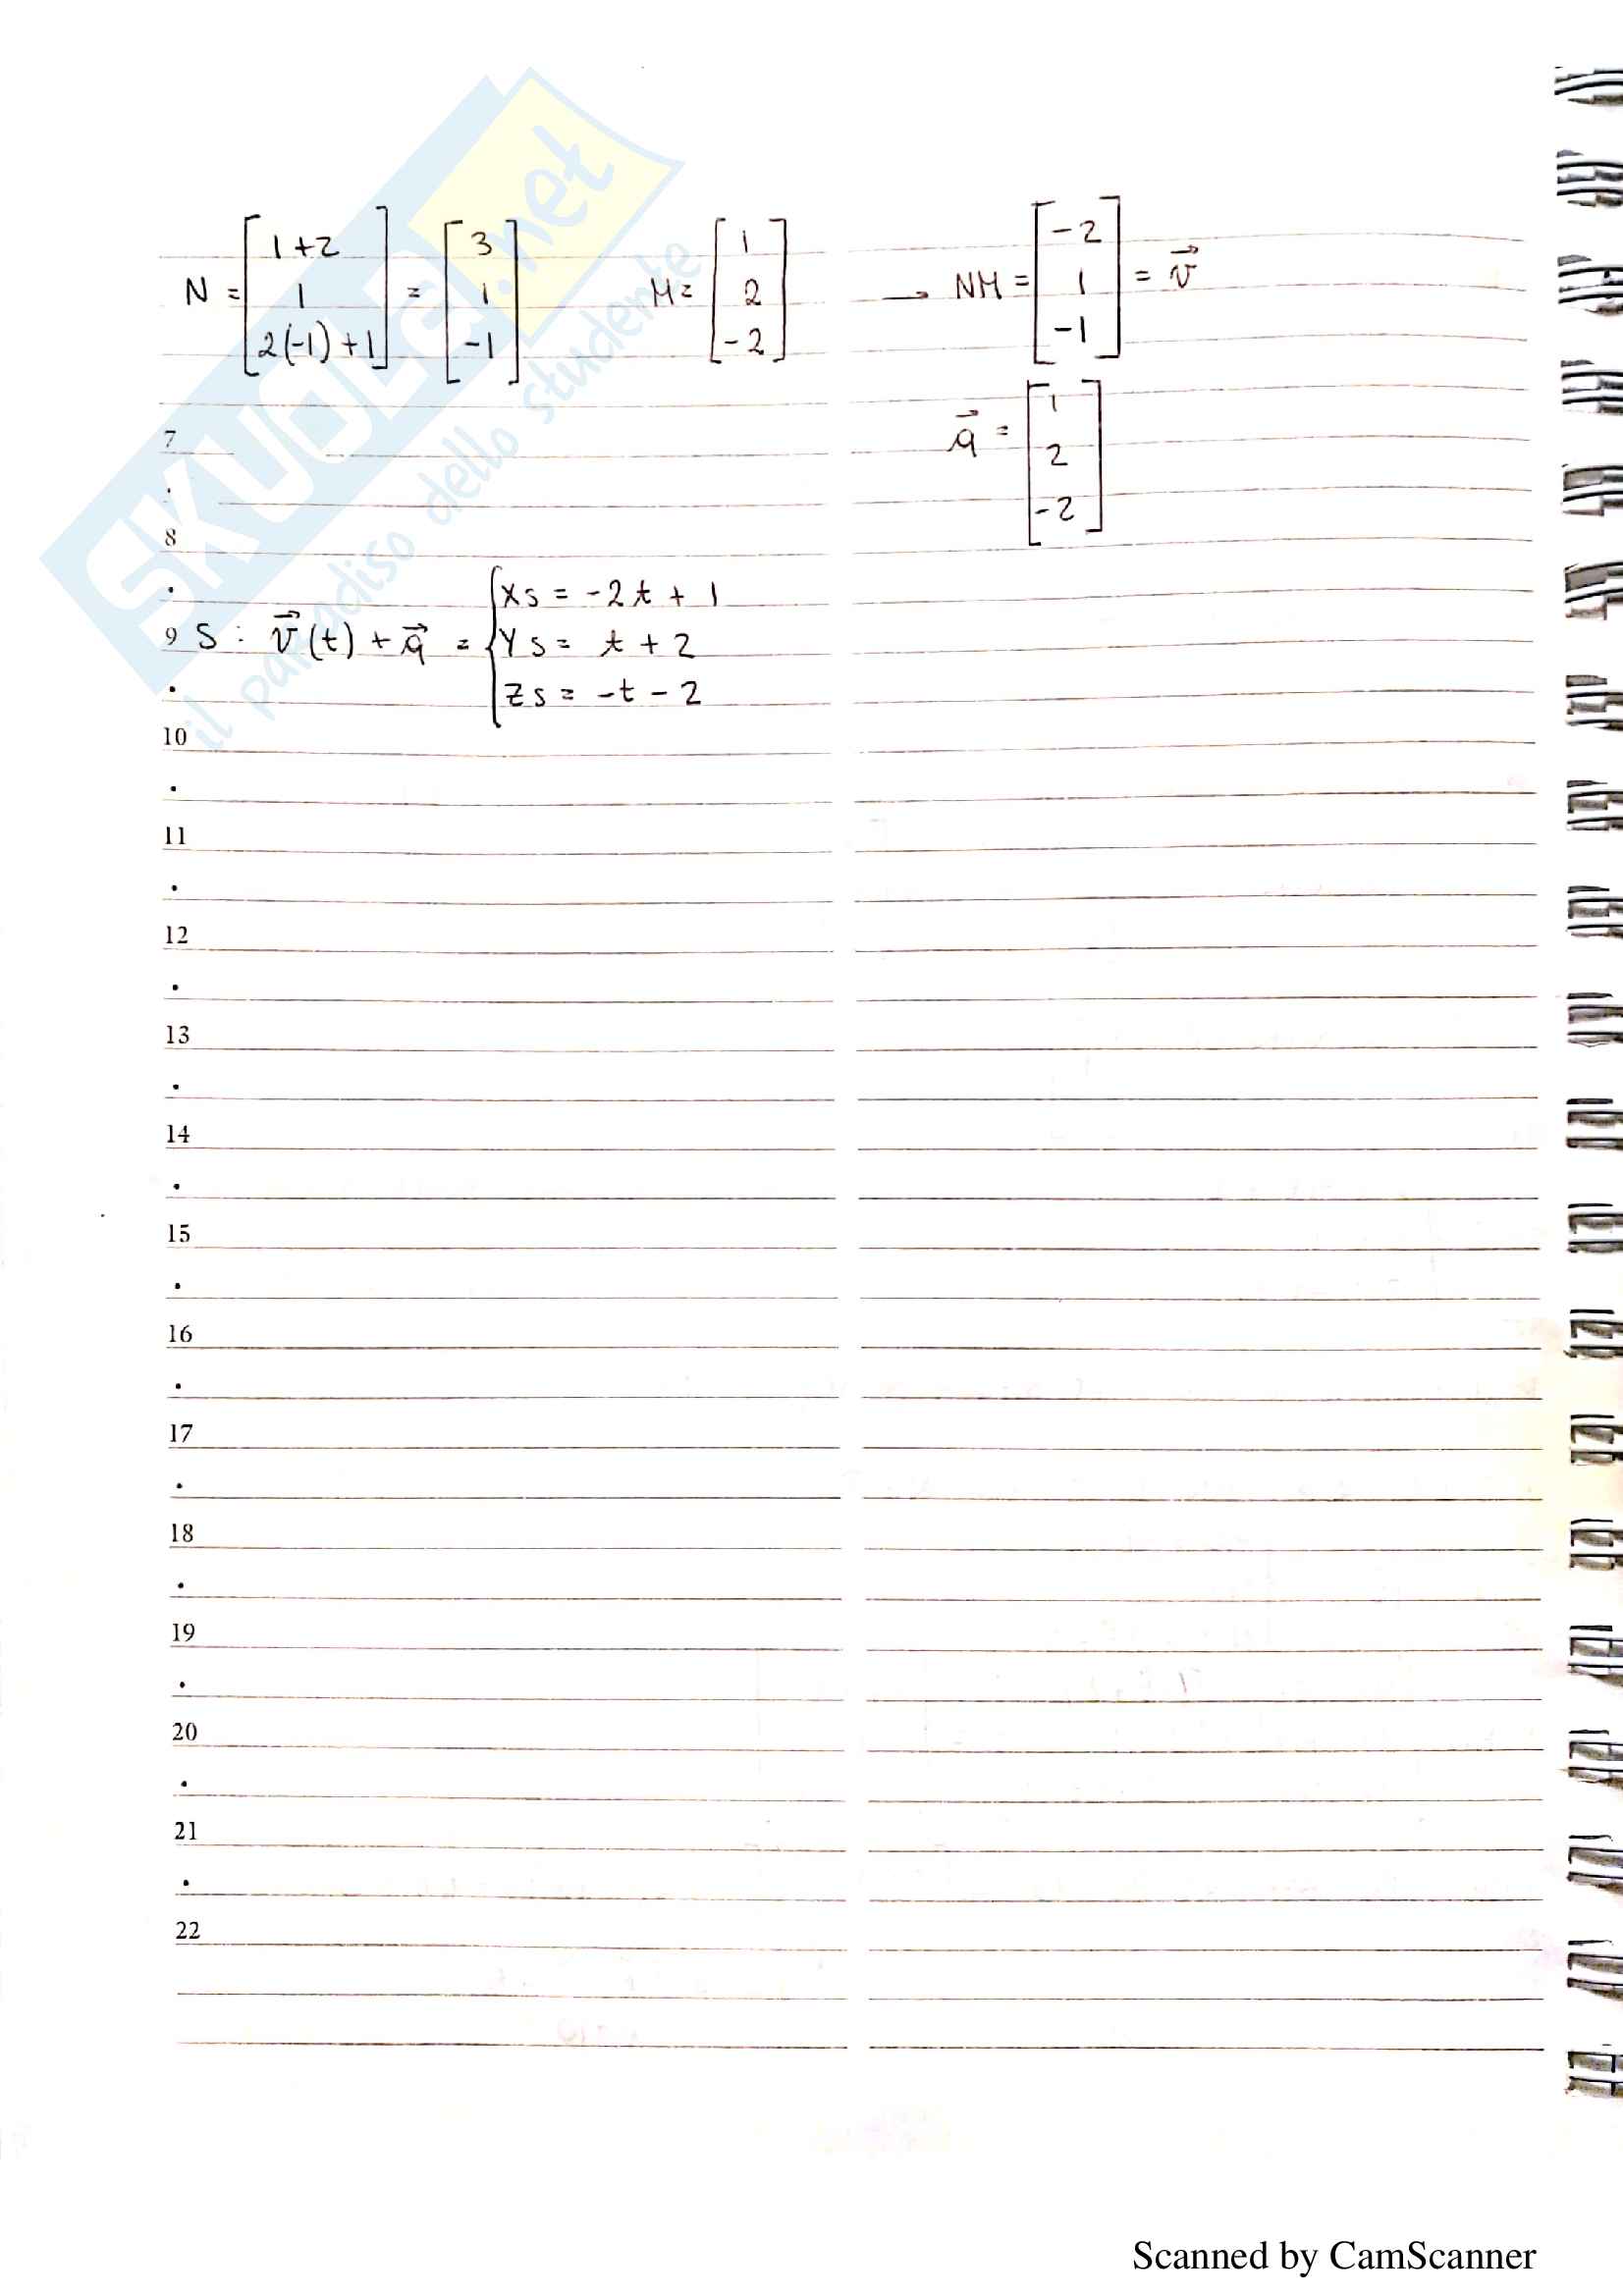 SKUOLA.net
il paradiso dello studente
N = [1+2 1 2(-1)+1] = [3 1 -1] M = [1 2 -2] → NM = [-2 1 -1] = v⃗
q⃗ = [1 2 -2]
7
8
xs = -2t + 1
9 S : v⃗(t) + q⃗ = { ys = t + 2
zs = -t - 2
10
11
12
13
14
15
16
17
18
19
20
21
22
Scanned by CamScanner